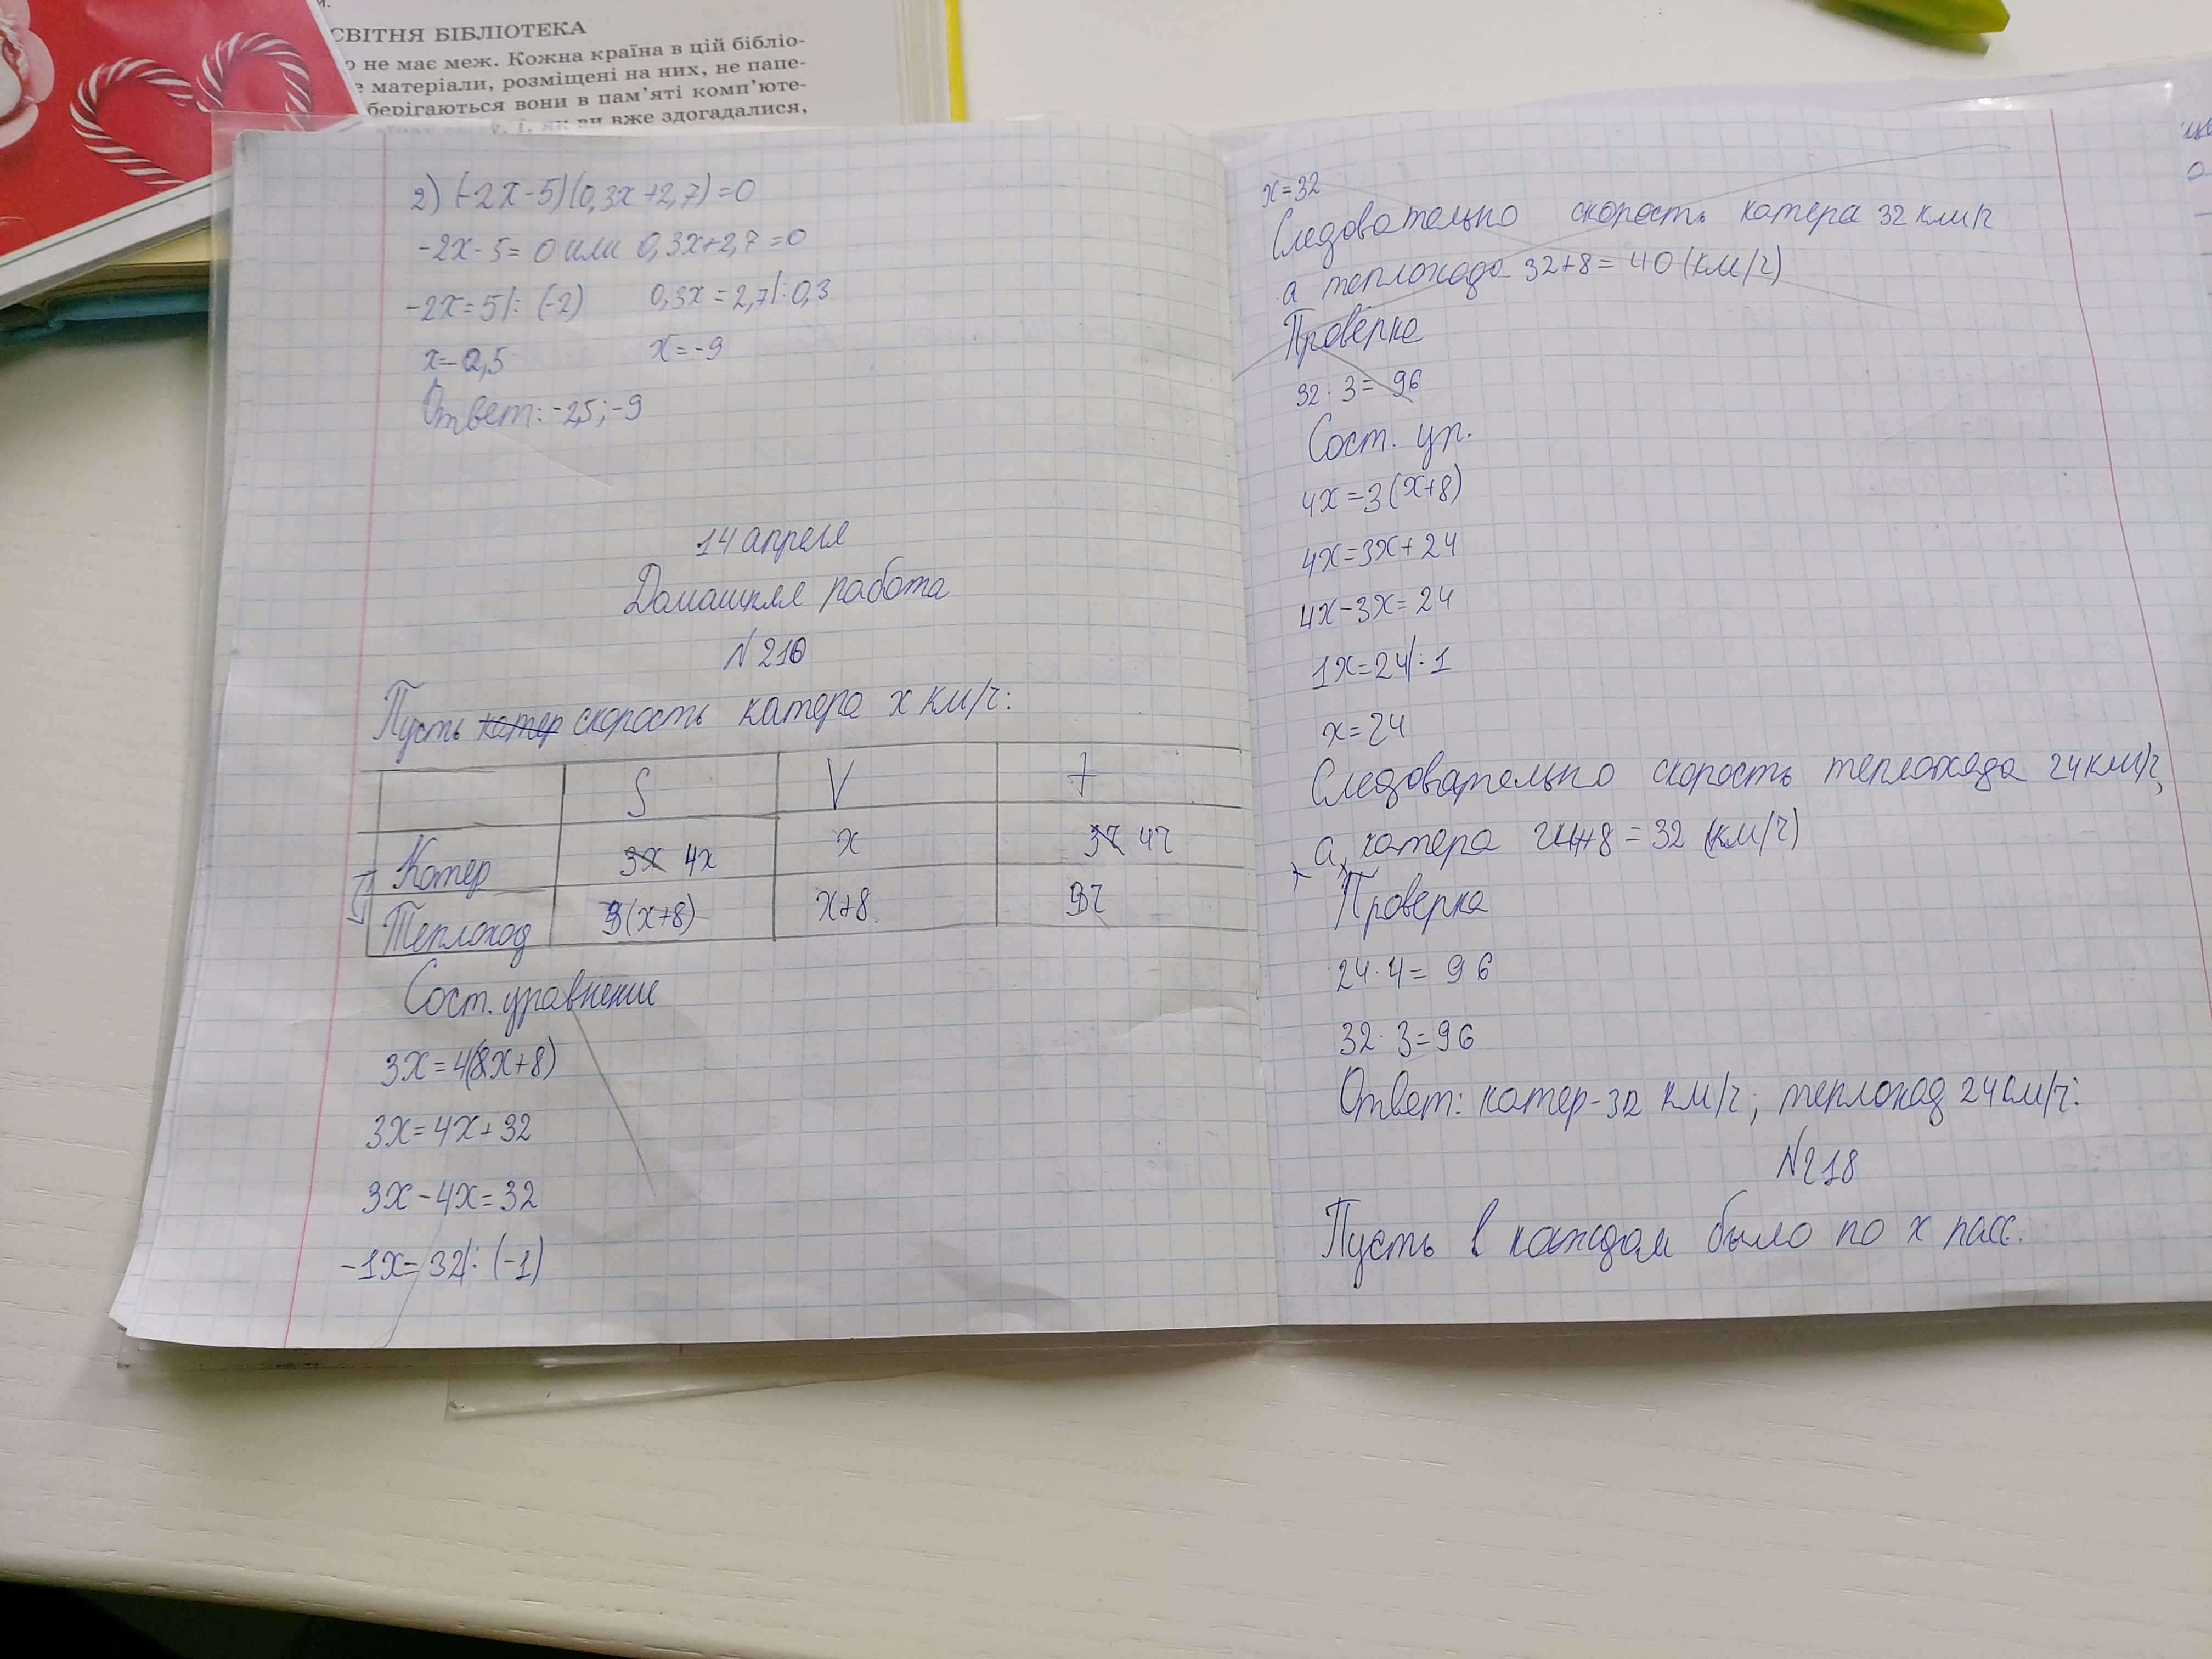 СВІТНЯ БІБЛІОТЕКА
не має меж. Кожна країна в цій бібліо-
матеріали, розміщені на них, не папе-
берігаються вони в пам'яті комп'юте-
і, як ви вже здогадалися,
2) (-2x-5)(0,3x+2,7)=0
-2x-5=0 или 0,3x+2,7=0
-2x=5|:(-2) 0,3x=2,7|:0,3
x=-2,5 x=-9
Ответ: -2,5; -9
14 апреля
Домашняя работа
№210
Пусть катер скорость катера x км/ч:
S V t
Катер 3x 4x x 3ч 4ч
Теплоход 3(x+8) x+8 3ч
Сост. уравнение
3x=4(8x+8)
3x=4x+32
3x-4x=32
-1x=32|:(-1)
x=32
Следовательно скорость катера 32 км/ч
а теплохода 32+8=40 (км/ч)
Проверка
32·3=96
Сост. ур.
4x=3(x+8)
4x=3x+24
4x-3x=24
1x=24|:1
x=24
Следовательно скорость теплохода 24 км/ч,
а катера 24+8=32 (км/ч)
Проверка
24·4=96
32·3=96
Ответ: катер-32 км/ч; теплоход 24 км/ч:
№218
Пусть в каждом было по x пасс.